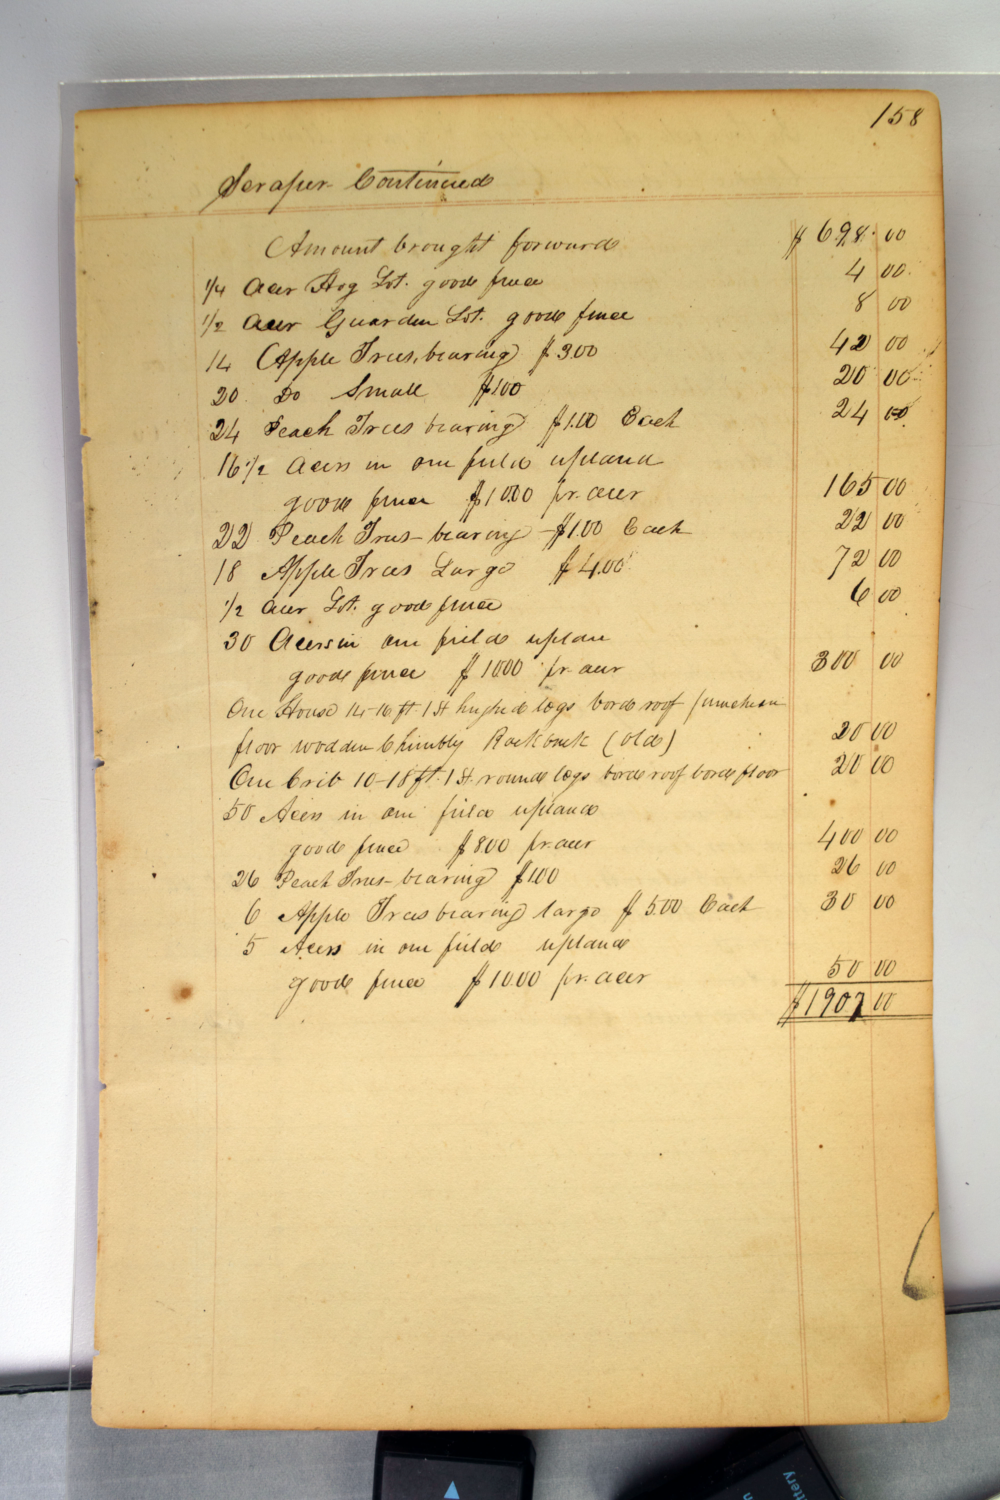 158
Scraper Continued
Amount brought forward $ 698 00
1/4 Acer Hog Lot. good fence 4 00
1/2 Acer Guarden Lot. good fence 8 00
14 Apple Trees, bearing $ 3.00 42 00
20 Do Small $1.00 20 00
24 Peach Trees bearing $1.00 Each 24 00
16 1/2 Acers in one field upland
good fence $10.00 pr. acer 165 00
22 Peach Trees - bearing - $1.00 Each 22 00
18 Apple Trees Large $ 4.00 72 00
1/2 acer Lot. good fence 6 00
30 Acers in one field uplan
good fence $ 10.00 pr. acer 300 00
One House 14-16 ft. 1 St. hughed logs bord roof puncheon
floor wodden Chimbly Rock back (old) 20 00
One Crib 10-18 ft. 1 St. round logs bord roof bord floor 20 00
50 Acers in one field upland
good fence $8.00 pr. acer 400 00
26 Peach Trees - bearing $1.00 26 00
6 Apple Trees bearing large $ 5.00 Each 30 00
5 Acers in one field upland
good fence $10.00 pr. acer 50 00
$1907 00
ttery